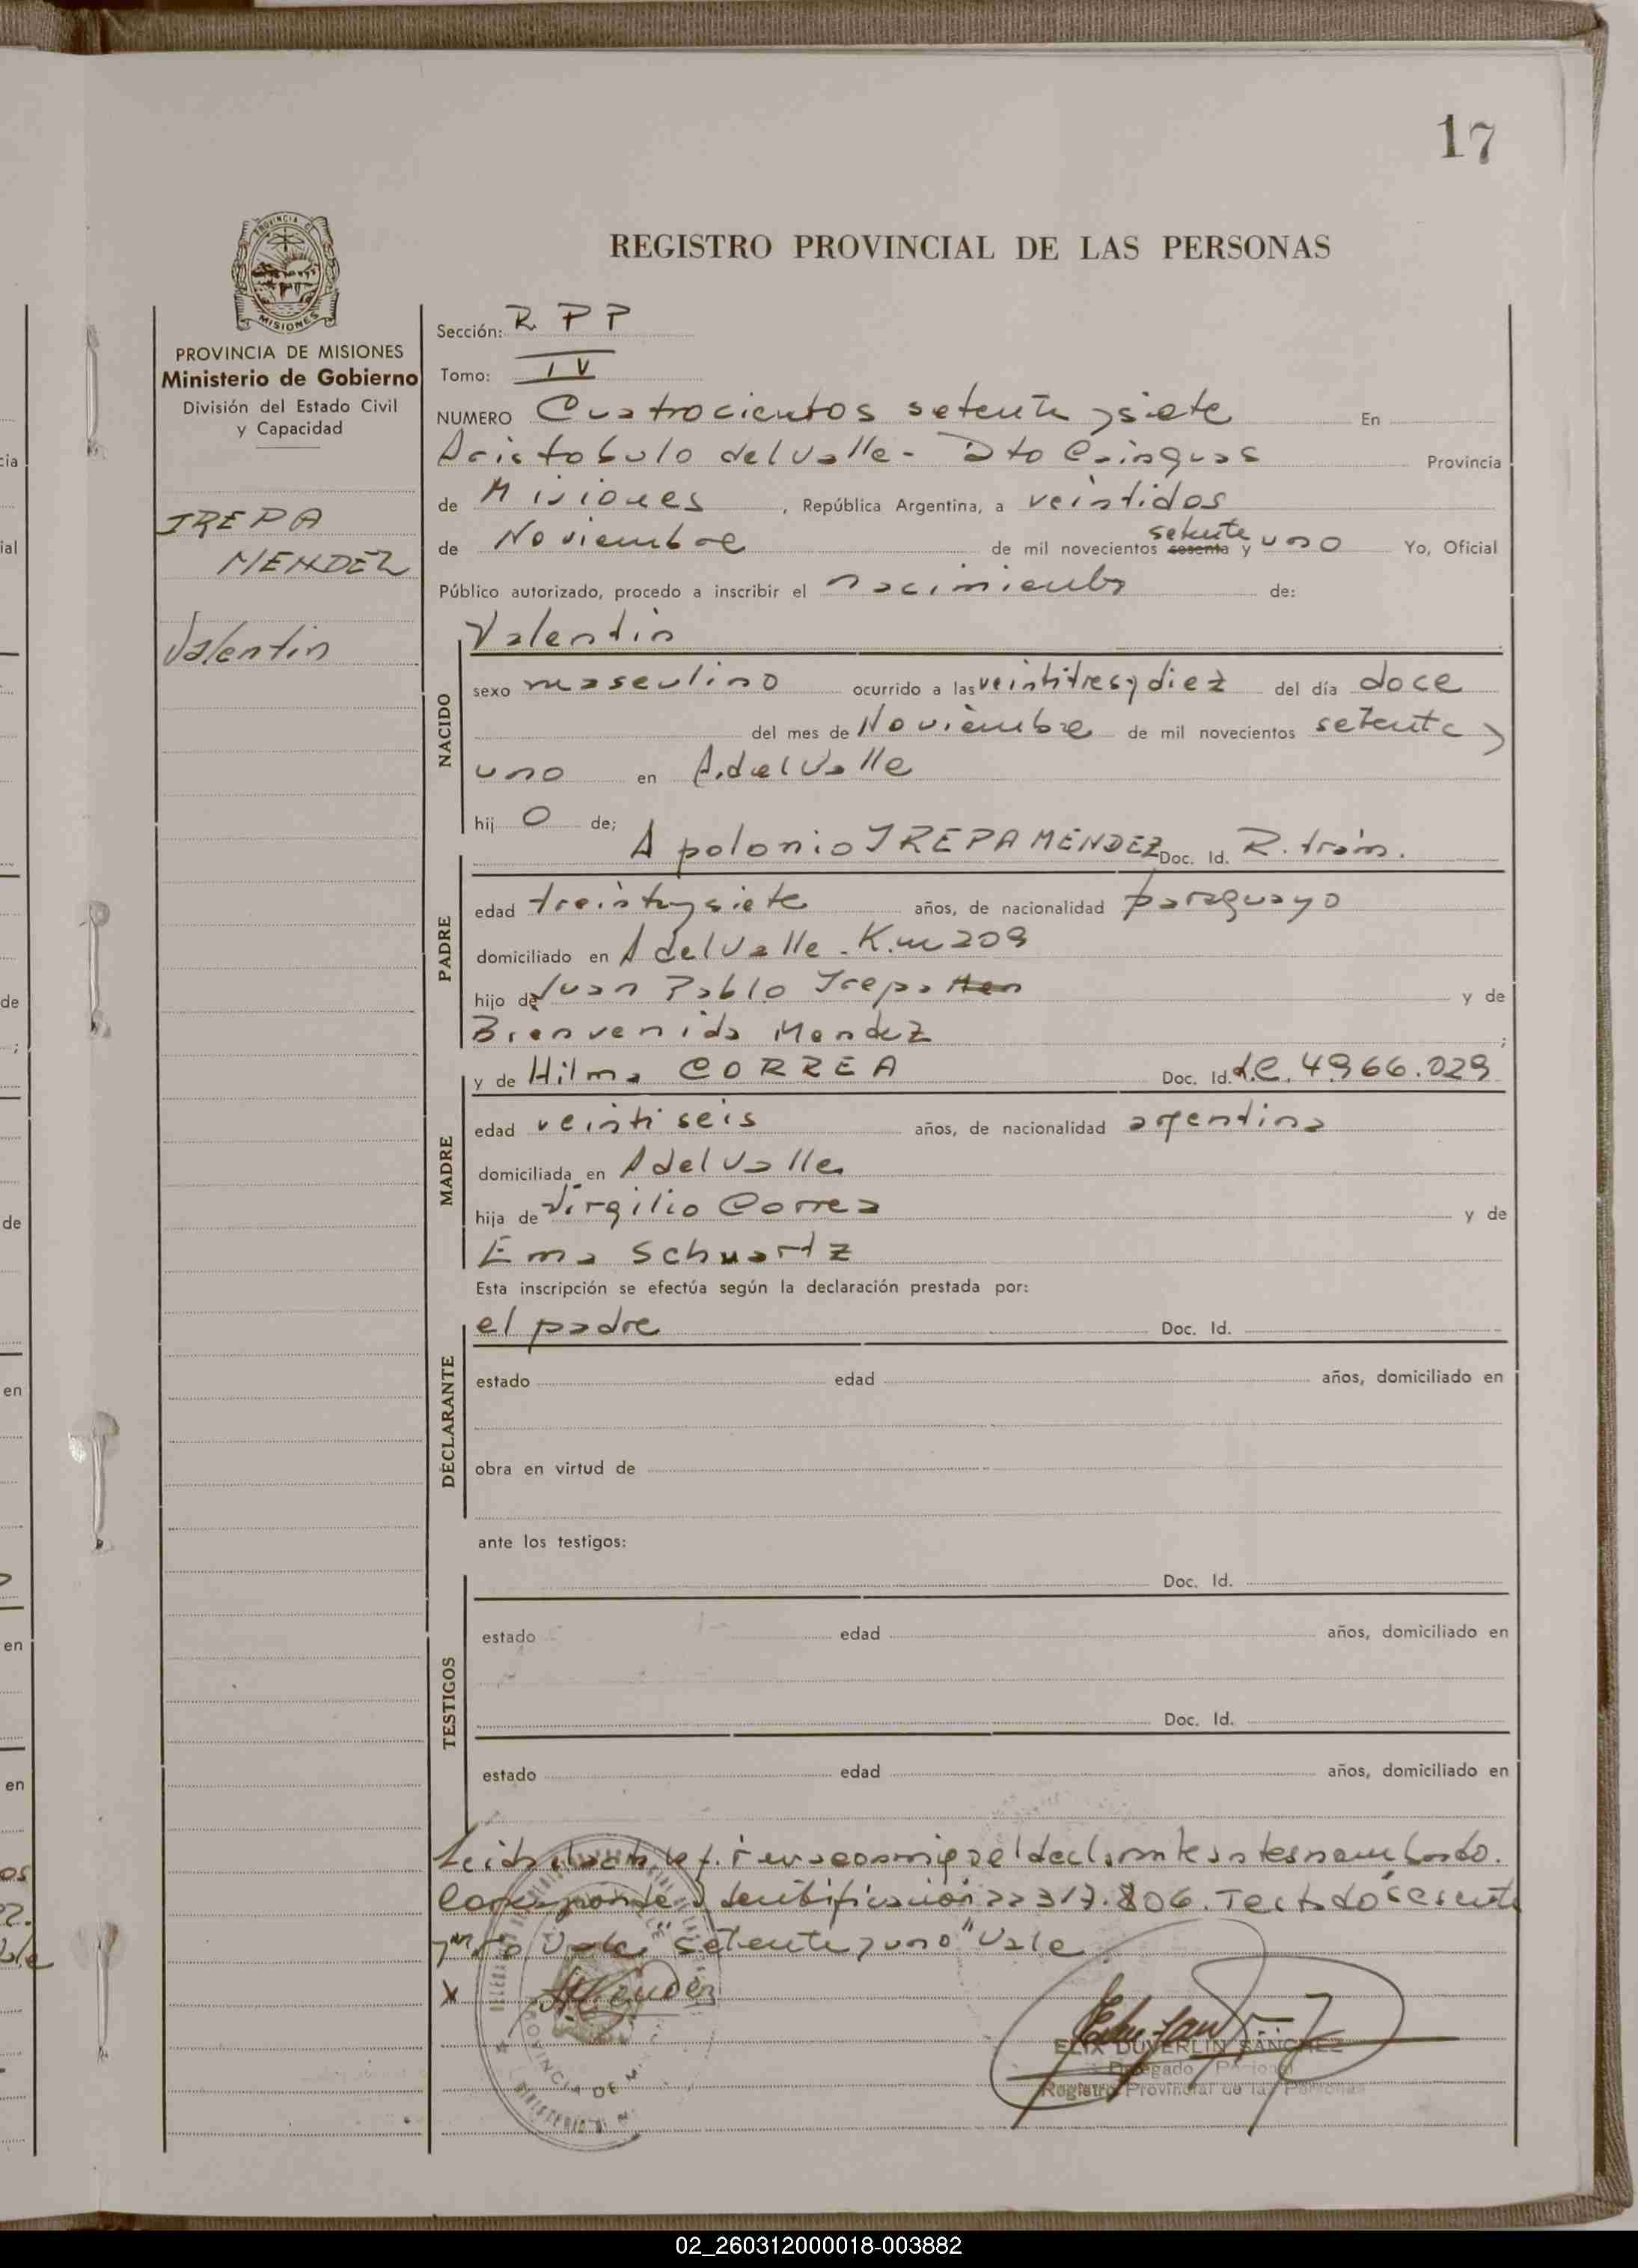 17
REGISTRO PROVINCIAL DE LAS PERSONAS
PROVINCIA DE MISIONES
Ministerio de Gobierno
División del Estado Civil
y Capacidad
IREPA
MENDEZ
Valentin
Sección: R P P
Tomo: IV
NUMERO Cuatrocientos setenta y siete En
Aristobulo del Valle - Dto Cainguas Provincia
de Misiones, República Argentina, a veintidos
de Noviembre de mil novecientos sesenta setenta y uno Yo, Oficial
Público autorizado, procedo a inscribir el nacimiento de:
Valentin
NACIDO
sexo masculino ocurrido a las veintitres y diez del día doce
del mes de Noviembre de mil novecientos setenta y
uno en A. del Valle
hij o de;
Apolonio IREPA MENDEZ Doc. Id. R. trám.
PADRE
edad treinta y siete años, de nacionalidad paraguayo
domiciliado en A del Valle - K.m 209
hijo de Juan Pablo Irepa Men y de
Bienvenida Mendez ;
y de Hilma CORREA Doc. Id. L.C. 4966.029
MADRE
edad veintiseis años, de nacionalidad argentina
domiciliada en A del Valle
hija de Virgilio Correa y de
Ema Schuartz
Esta inscripción se efectúa según la declaración prestada por:
el padre Doc. Id.
DECLARANTE
estado edad años, domiciliado en
obra en virtud de
ante los testigos:
Doc. Id.
TESTIGOS
estado edad años, domiciliado en
Doc. Id.
estado edad años, domiciliado en
Leida el acta la firma conmigo el declarante antes nombrado.
Corresponde Identificación 22317.806. Testado "sesenta
"setenta y uno" Vale
x Mendez
ELIX DUVERLIN SANCHEZ
Delegado
Registro Provincial de las Personas
02_260312000018-003882